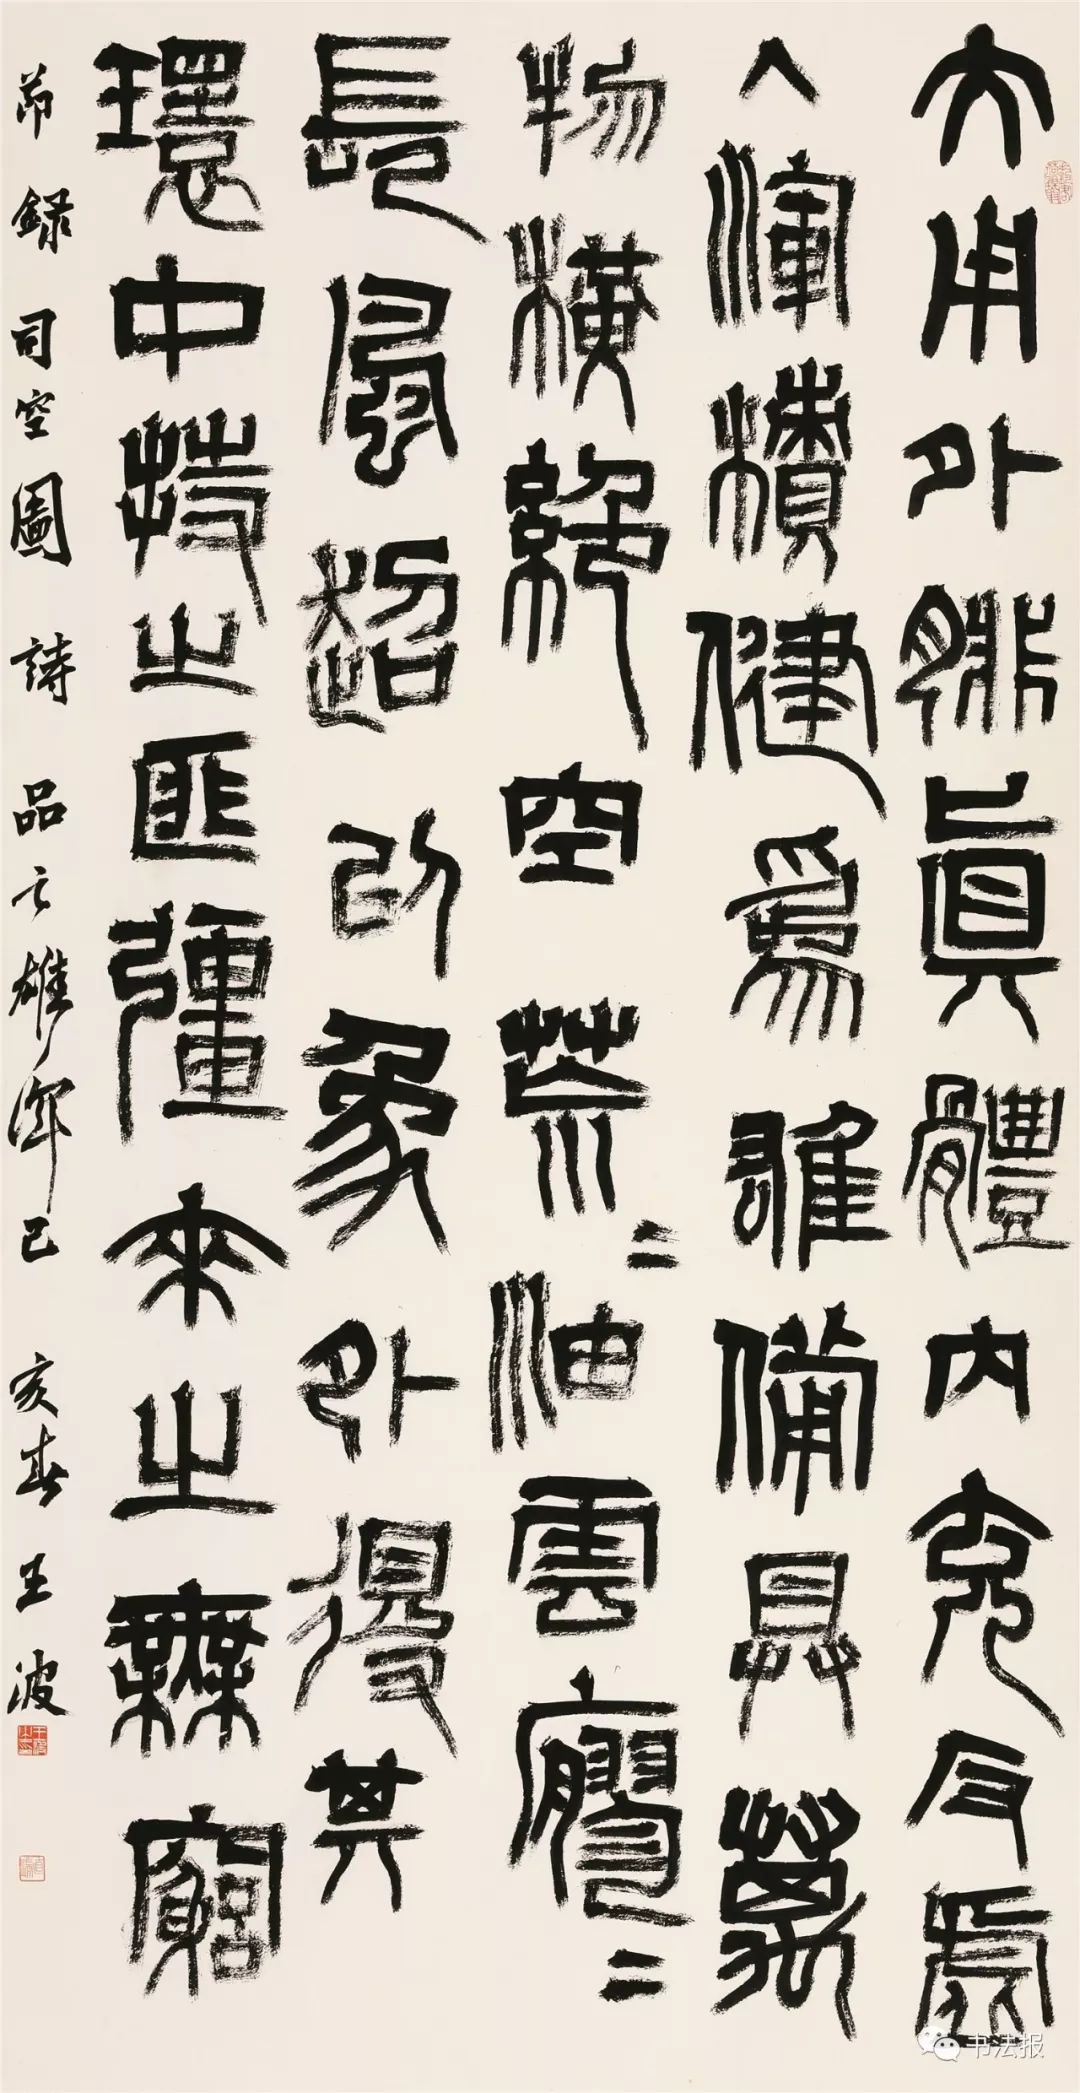 大用外腓真體内充反虛
入渾積健為雄備具萬
物橫絶空荒荒油雲寥寥
長風超以象外得其
環中持之匪彊來之無窮
節錄司空圖詩品之雄渾己亥春王波
书法报